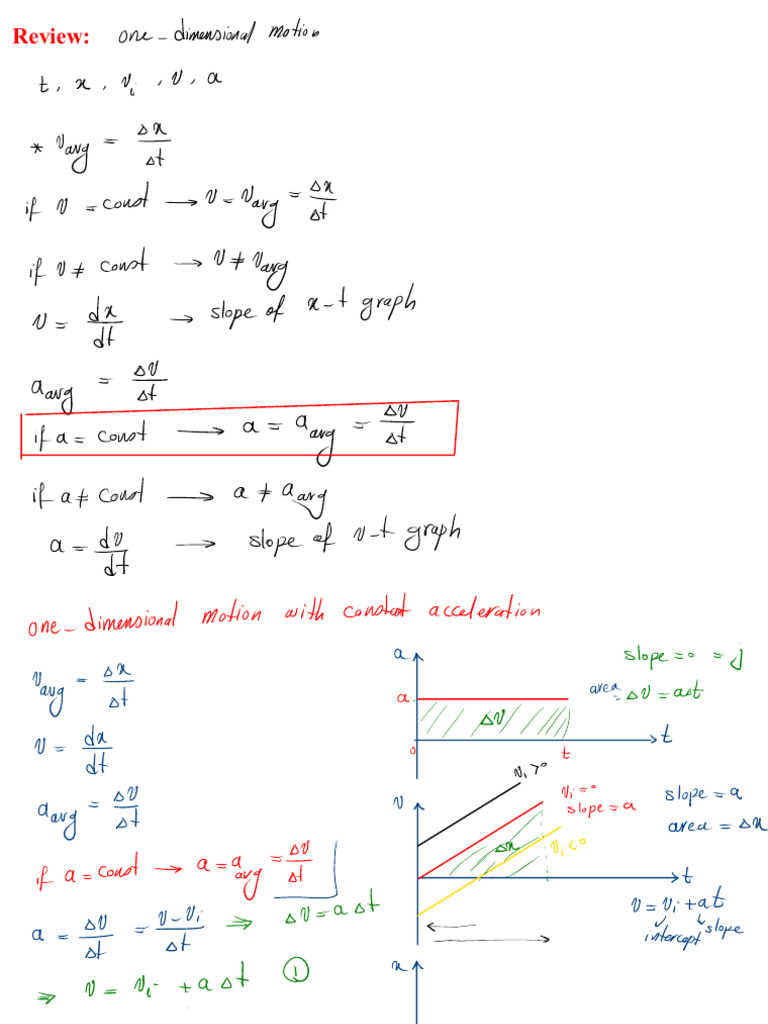 Review: one-dimensional motion
t, x, vᵢ, v, a
* v_avg = Δx/Δt
if v = const → v = v_avg = Δx/Δt
if v ≠ const → v ≠ v_avg
v = dx/dt → slope of x-t graph
a_avg = Δv/Δt
if a = const → a = a_avg = Δv/Δt
if a ≠ const → a ≠ a_avg
a = dv/dt → slope of v-t graph
one-dimensional motion with constant acceleration
v_avg = Δx/Δt
v = dx/dt
a_avg = Δv/Δt
if a = const → a = a_avg = Δv/Δt
a = Δv/Δt = v-vᵢ/Δt ⇒ Δv = a Δt
⇒ v = vᵢ + a Δt ①
a
slope = 0 = j
area = Δv = aΔt
a
Δv
0 t
t
v
vᵢ > 0
vᵢ = 0
slope = a
slope = a
area = Δx
Δx
vᵢ < 0
t
v = vᵢ + at
intercept slope
x